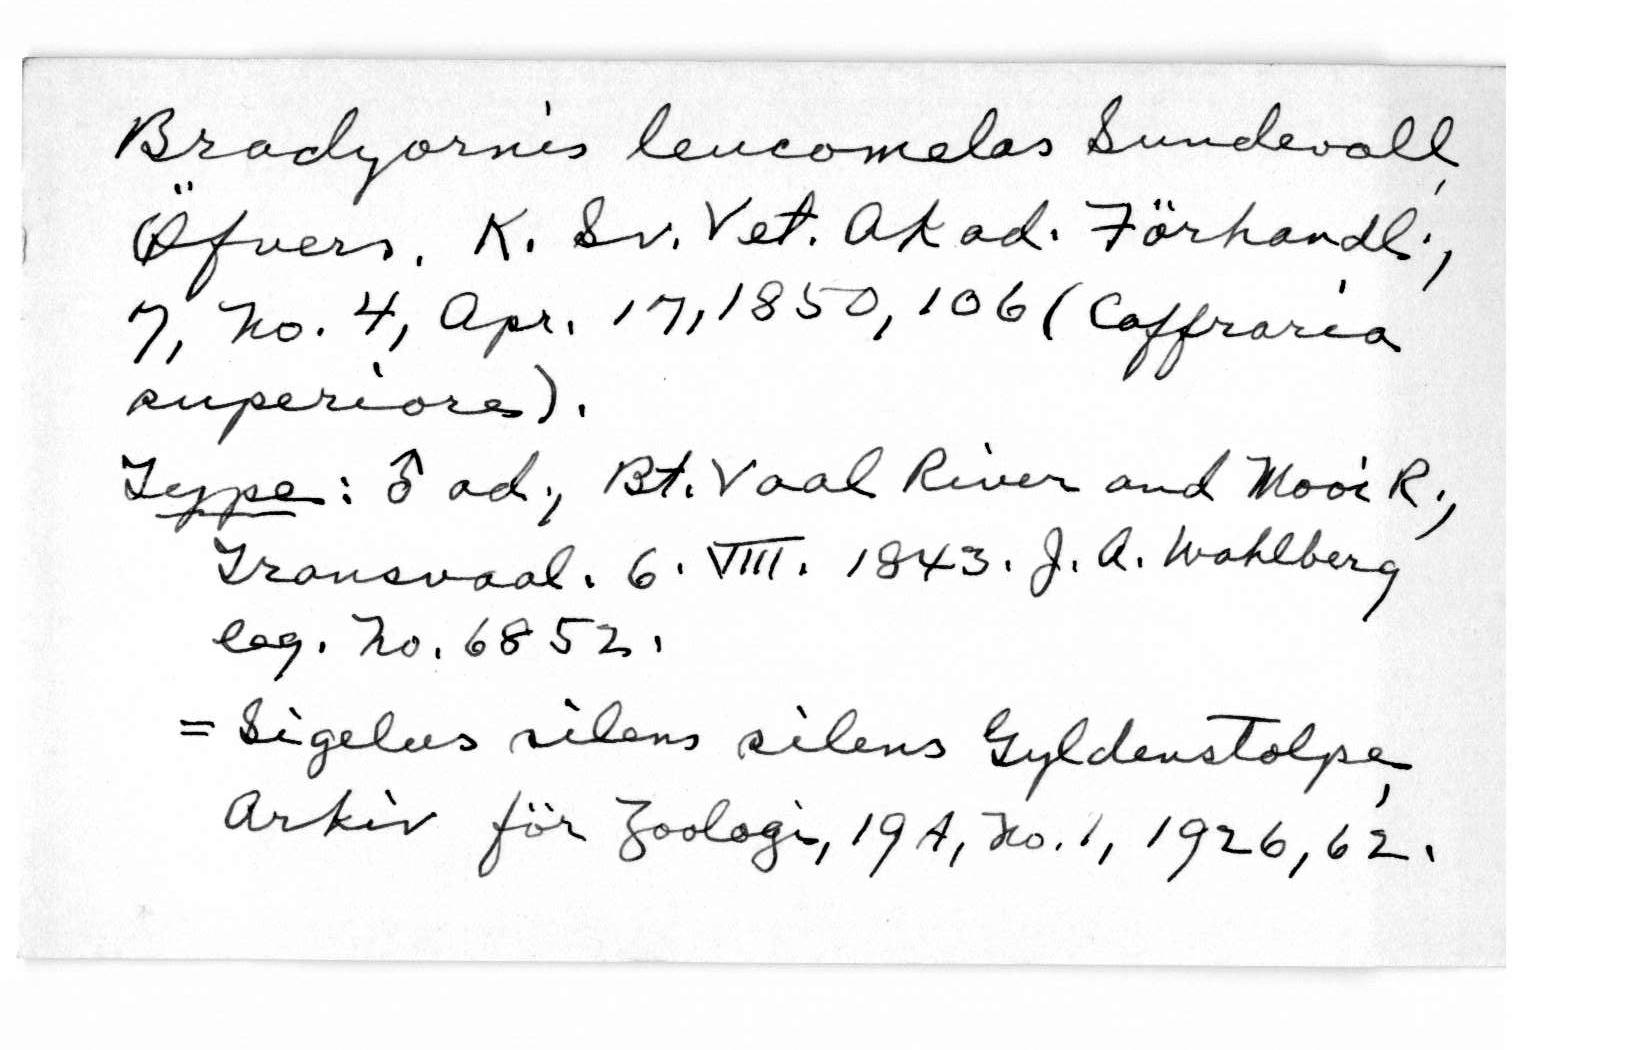 Bradyornis leucomelas Sundevall,
Öfvers. K. Sv. Vet. Akad. Förhandl.,
7, No. 4, Apr. 17, 1850, 106 (Caffraria
superiore).
Type: ♂ ad., Bt. Vaal River and Mooi R.,
Transvaal. 6. VIII. 1843. J. A. Wahlberg
leg. No. 6852.
= Sigelus silens silens Gyldenstolpe,
Arkiv för Zoologi, 19A, No. 1, 1926, 62.